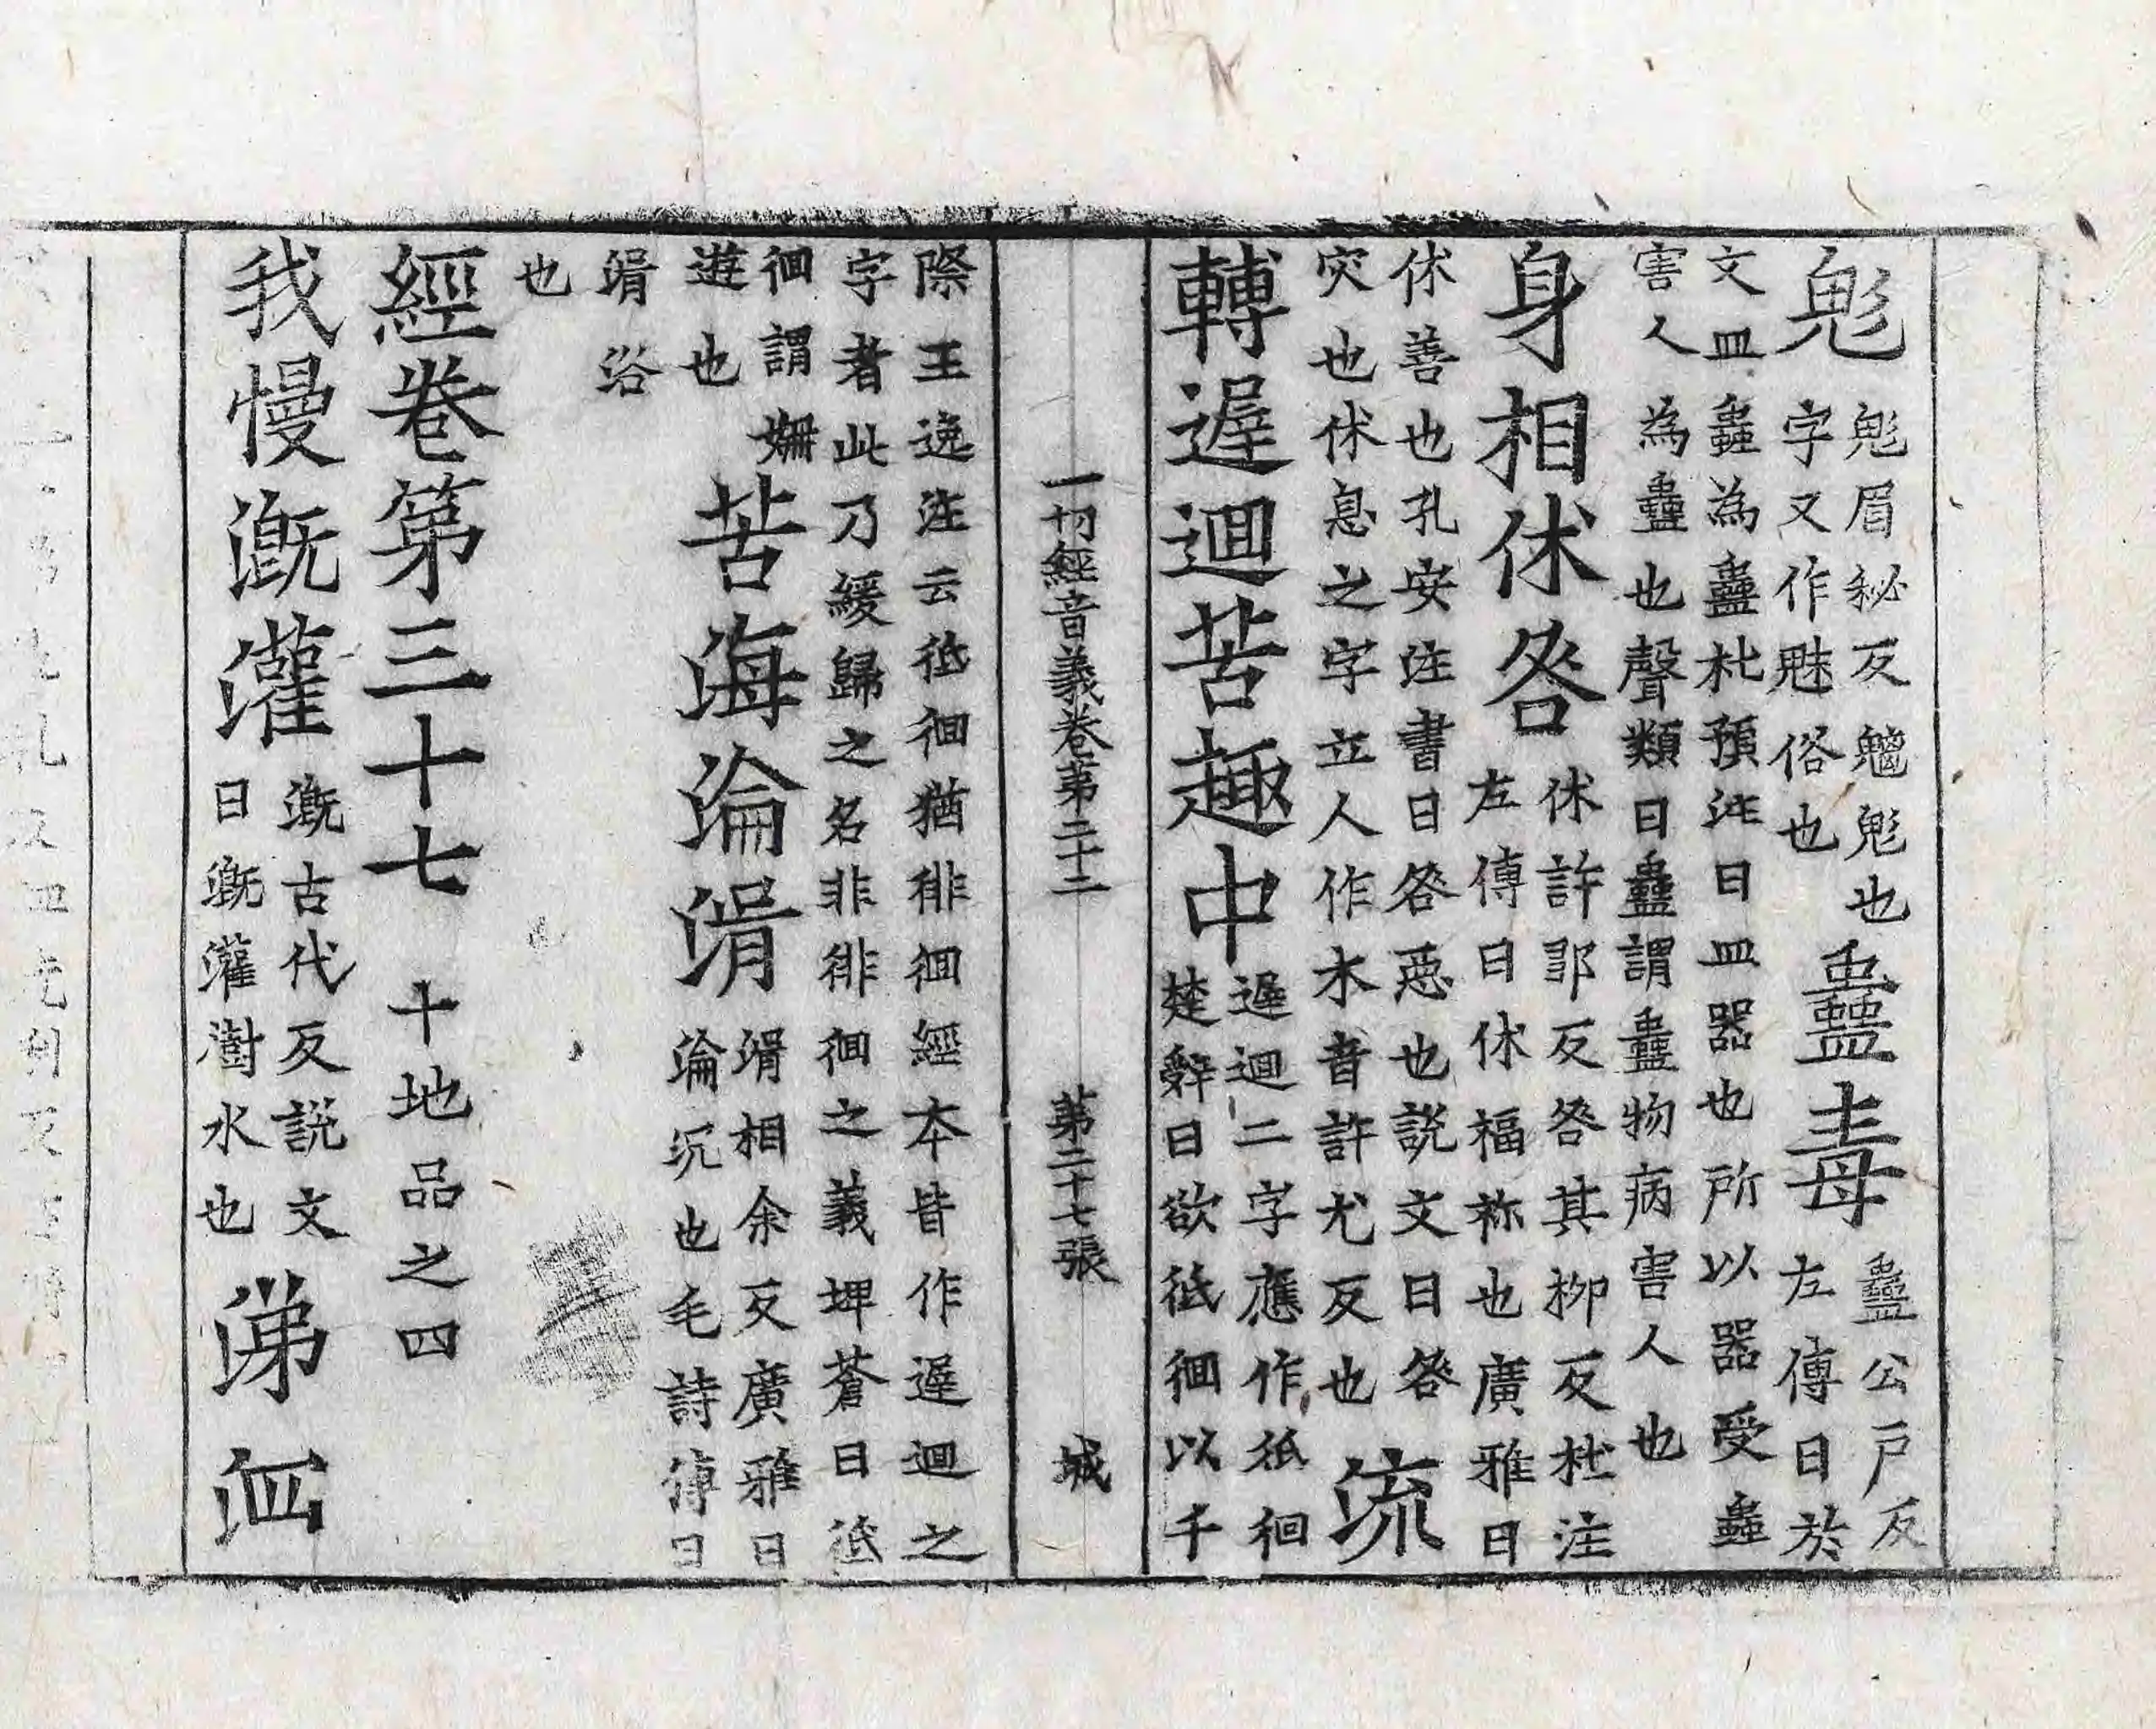 鬽鬽眉秘反魑鬽也
字又作魅俗也
蠱毒蠱公戶反
左傳曰於
文皿蟲為蠱杜預注曰皿器也所以器受蟲
害人為蠱也聲類曰蠱謂蠱物病害人也
身相休咎休許郍反咎其柳反杜注
左傳曰休福祢也廣雅曰
休善也孔安注書曰咎惡也說文曰咎
灾也休息之字立人作木音許尤反也
流
轉遟迴苦趣中遟迴二字應作彽徊
楚辭曰欲彽徊以千
一切經音義卷第二十二
第二十七張
城
際王逸注云彽徊猶徘徊經本皆作遟迴之
字者此乃緩歸之名非徘徊之義埤蒼曰彽
徊謂姍
遊也
苦海淪湑湑相余反廣雅曰
淪沉也毛詩傳曰
湑浴
也
經卷第三十七 十地品之四
我慢漑灌漑古代反說文
曰漑灌澍水也
涕泗